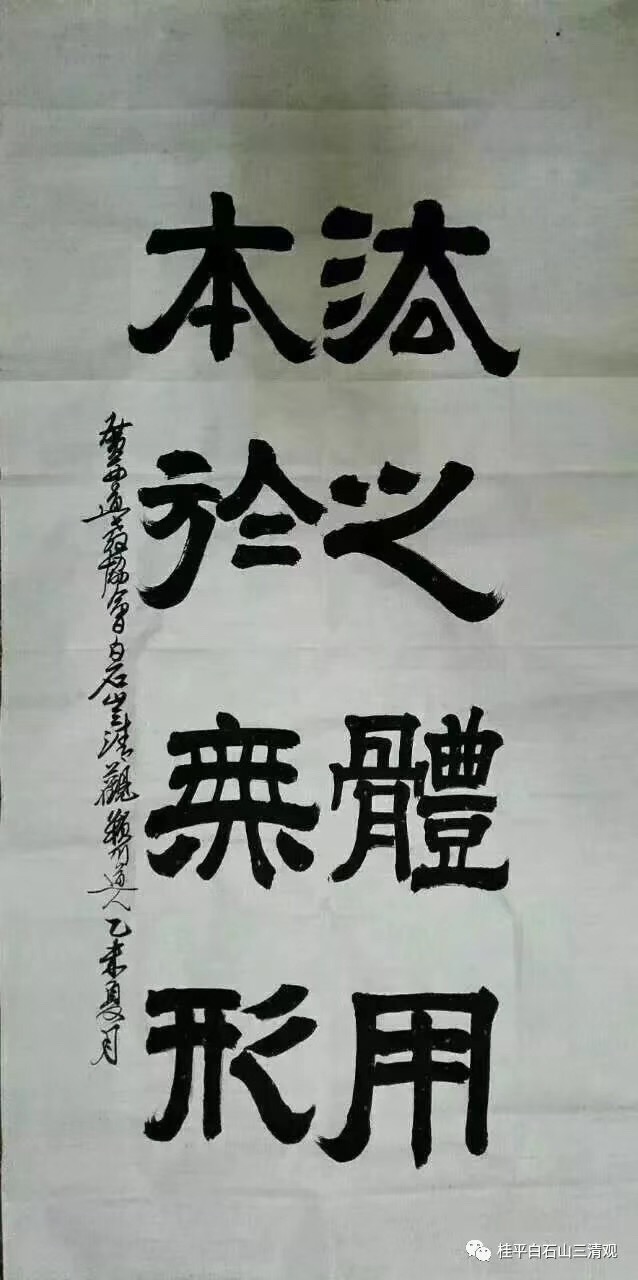 法之體用
本於無形
廣西道教協會白石山三清觀 道人乙未夏月
桂平白石山三清观